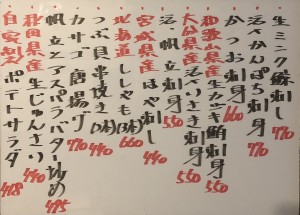 生ミンク鯨刺し 770
活〆かんぱち刺身 770
かつお刺身 660
和歌山県産生カツオ鮪刺身 550
大分県産活〆いさき刺身 550
活、帆立刺身 550
宮城県産ほや刺し 440
北海道ししゃも(3本) 660
つぶ貝串焼き(2本) 440
カサゴ唐揚げ 770
帆立とアスパラバター炒め 495
秋田県産生じゅんさい 440
自家製ポテトサラダ 418